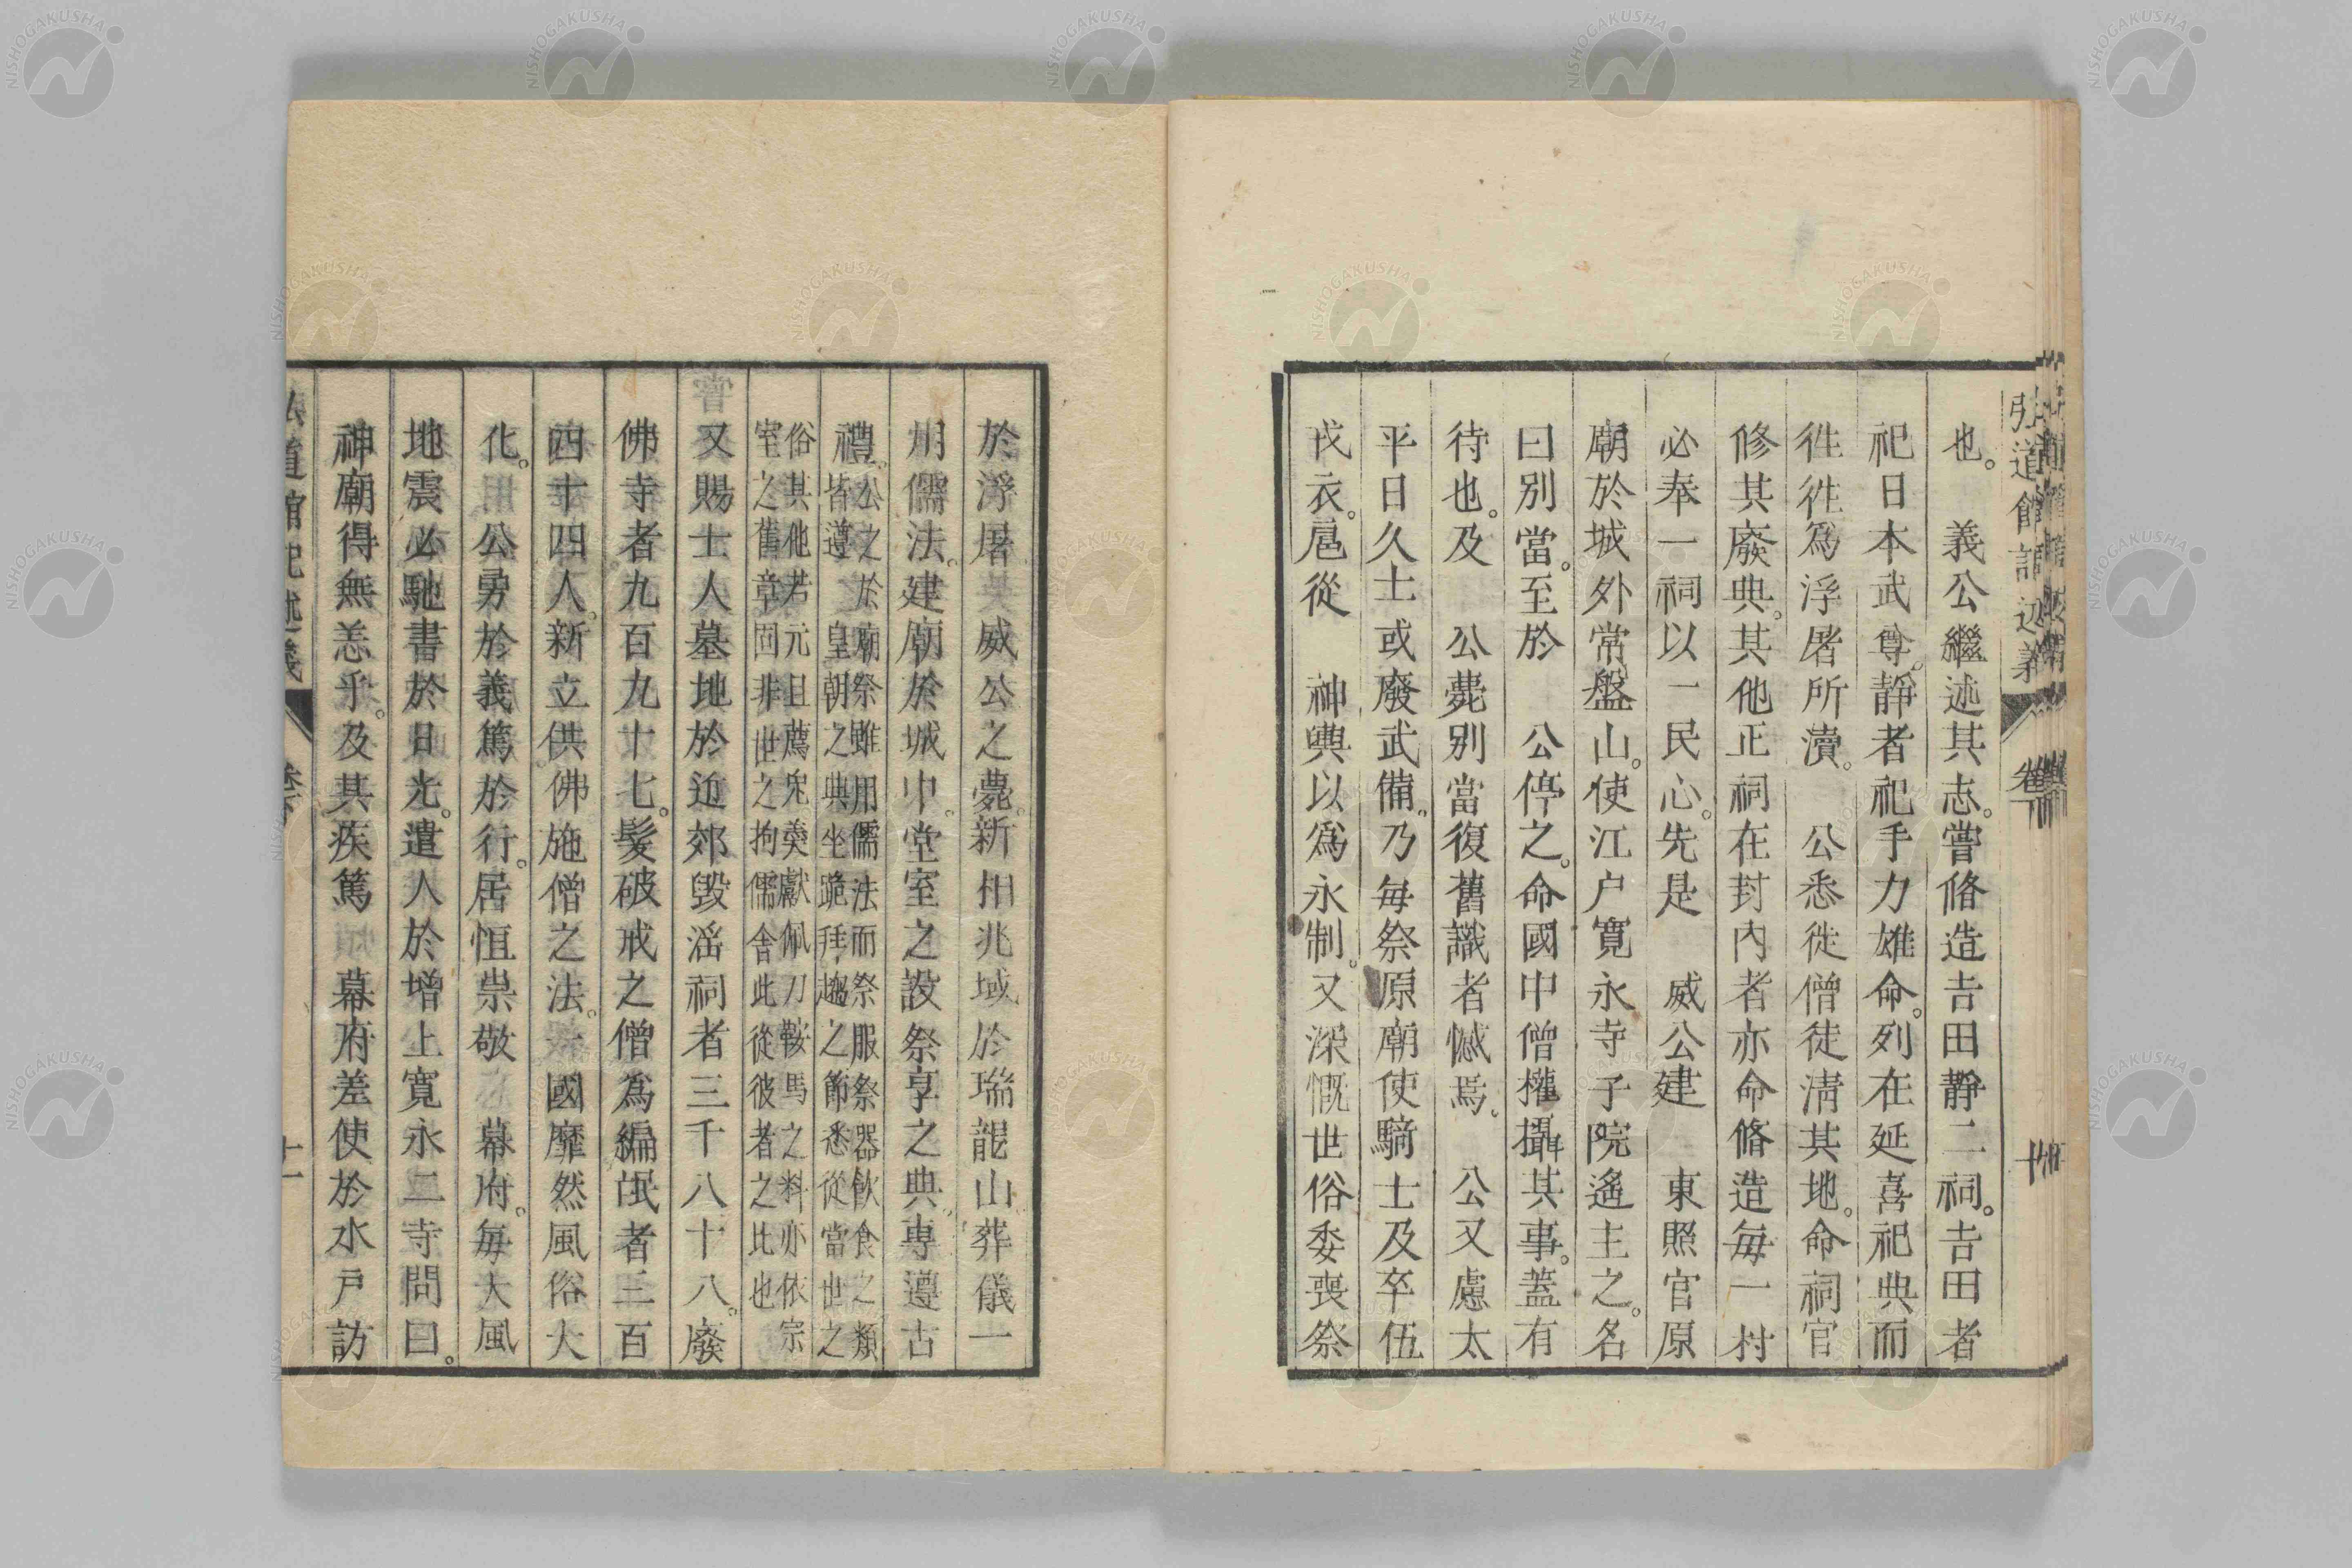 弘道館記述義 卷下 十
也。 義公繼述其志。嘗脩造吉田靜二祠。吉田者
祀日本武尊。靜者祀手力雄命。列在延喜祀典而
徃徃爲浮屠所瀆。 公悉徙僧徒淸其地。命祠官
修其廢典。其他正祠在封內者亦命脩造每一村
必奉一祠以一民心。先是 威公建 東照宮原
廟於城外常盤山。使江户寬永寺子院遙主之。名
曰別當。至於 公停之。命國中僧權攝其事。蓋有
待也。及 公薨別當復舊識者憾焉。 公又慮太
平日久士或廢武備。乃每祭原廟使騎士及卒伍
戎衣。扈從 神輿以爲永制。又深慨世俗委喪祭
於浮屠 威公之薨。新相兆域於瑞龍山葬儀一
用儒法。建廟於城中。堂室之設祭享之典專遵古
禮。公之於廟祭雖用儒法而祭服祭器飮食之類
皆遵 皇朝之典坐跪拜趨之節悉從當世之
俗其他若元旦薦兔羹獻佩刀鞍馬之料亦依宗
室之舊章固非世之拘儒舍此從彼者之比也
又賜士人墓地於近郊毀淫祠者三千八十八。廢
佛寺者九百九十七。髮破戒之僧爲編氓者三百
四十四人。新立供佛施僧之法。一國靡然風俗大
化。 公勇於義篤於行。居恒崇敬 幕府。每大風
地震必馳書於日光。遣人於增上寬永二寺問曰。
神廟得無恙乎。及其疾篤 幕府差使於水戶訪
弘道館記述義 卷下 十一